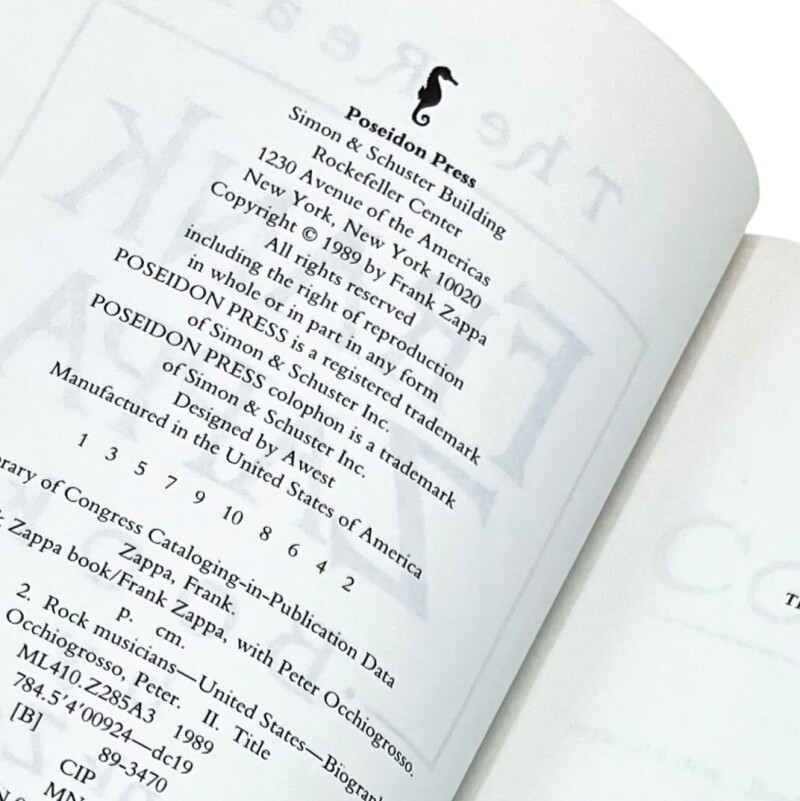 Poseidon Press
Simon & Schuster Building
Rockefeller Center
1230 Avenue of the Americas
New York, New York 10020
Copyright © 1989 by Frank Zappa
All rights reserved
including the right of reproduction
in whole or in part in any form
POSEIDON PRESS is a registered trademark
of Simon & Schuster Inc.
POSEIDON PRESS colophon is a trademark
of Simon & Schuster Inc.
Designed by Awest
Manufactured in the United States of America
1 3 5 7 9 10 8 6 4 2
of Congress Cataloging-in-Publication Data
Zappa, Frank.
Zappa book/Frank Zappa, with Peter Occhiogrosso.
p. cm.
2. Rock musicians—United States—
Occhiogrosso, Peter. II. Title
ML410.Z285A3 1989
784.5'4'00924—dc19
[B]
89-3470
CIP
MN